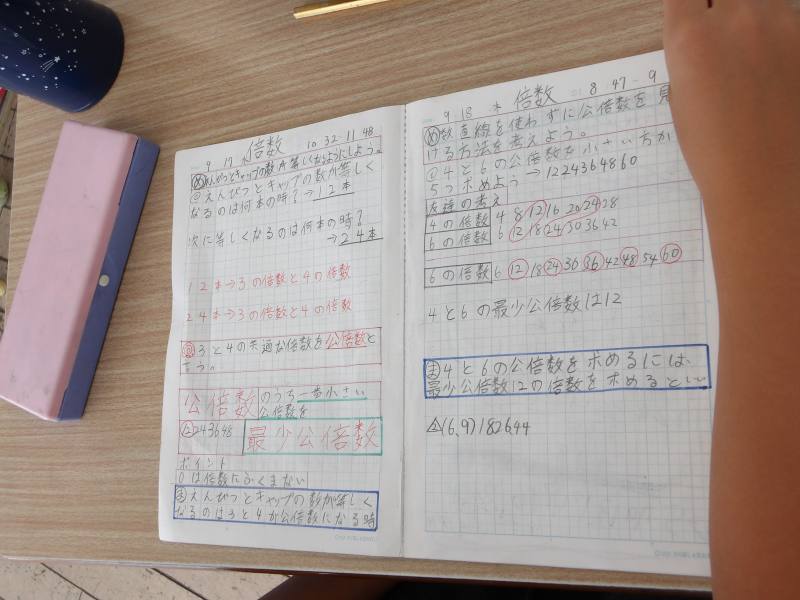 9 17 木 倍数 10 32-11 48
め えんぴつとキャップの数が等しくなるようにしよう。
@えんぴつとキャップの数が等しく
なるのは何本の時?→12本
次に等しくなるのは何本の時?
→24本
12本→3の倍数と4の倍数
24本→3の倍数と4の倍数
3と4の共通な倍数を公倍数と
言う。
公倍数のうち一番小さい
公倍数を
243648 最少公倍数
ポイント
0は倍数にふくまない
ま えんぴつとキャップの数が等しく
なるのは3と4が公倍数になる時
9 18 木 倍数 8 47-9
め 数直線を使わずに公倍数を見
ける方法を考えよう。
@4と6の公倍数を小さい方か
5つ求めよう→1224364860
友達の考え
4の倍数 4 8 12 16 20 24 28
6の倍数 6 12 18 24 30 36 42
6の倍数 6 12 18 24 30 36 42 48 54 60
4と6の最少公倍数は12
ま 4と6の公倍数を求めるには、
最少公倍数12の倍数を求めるといい
(6,9)182644